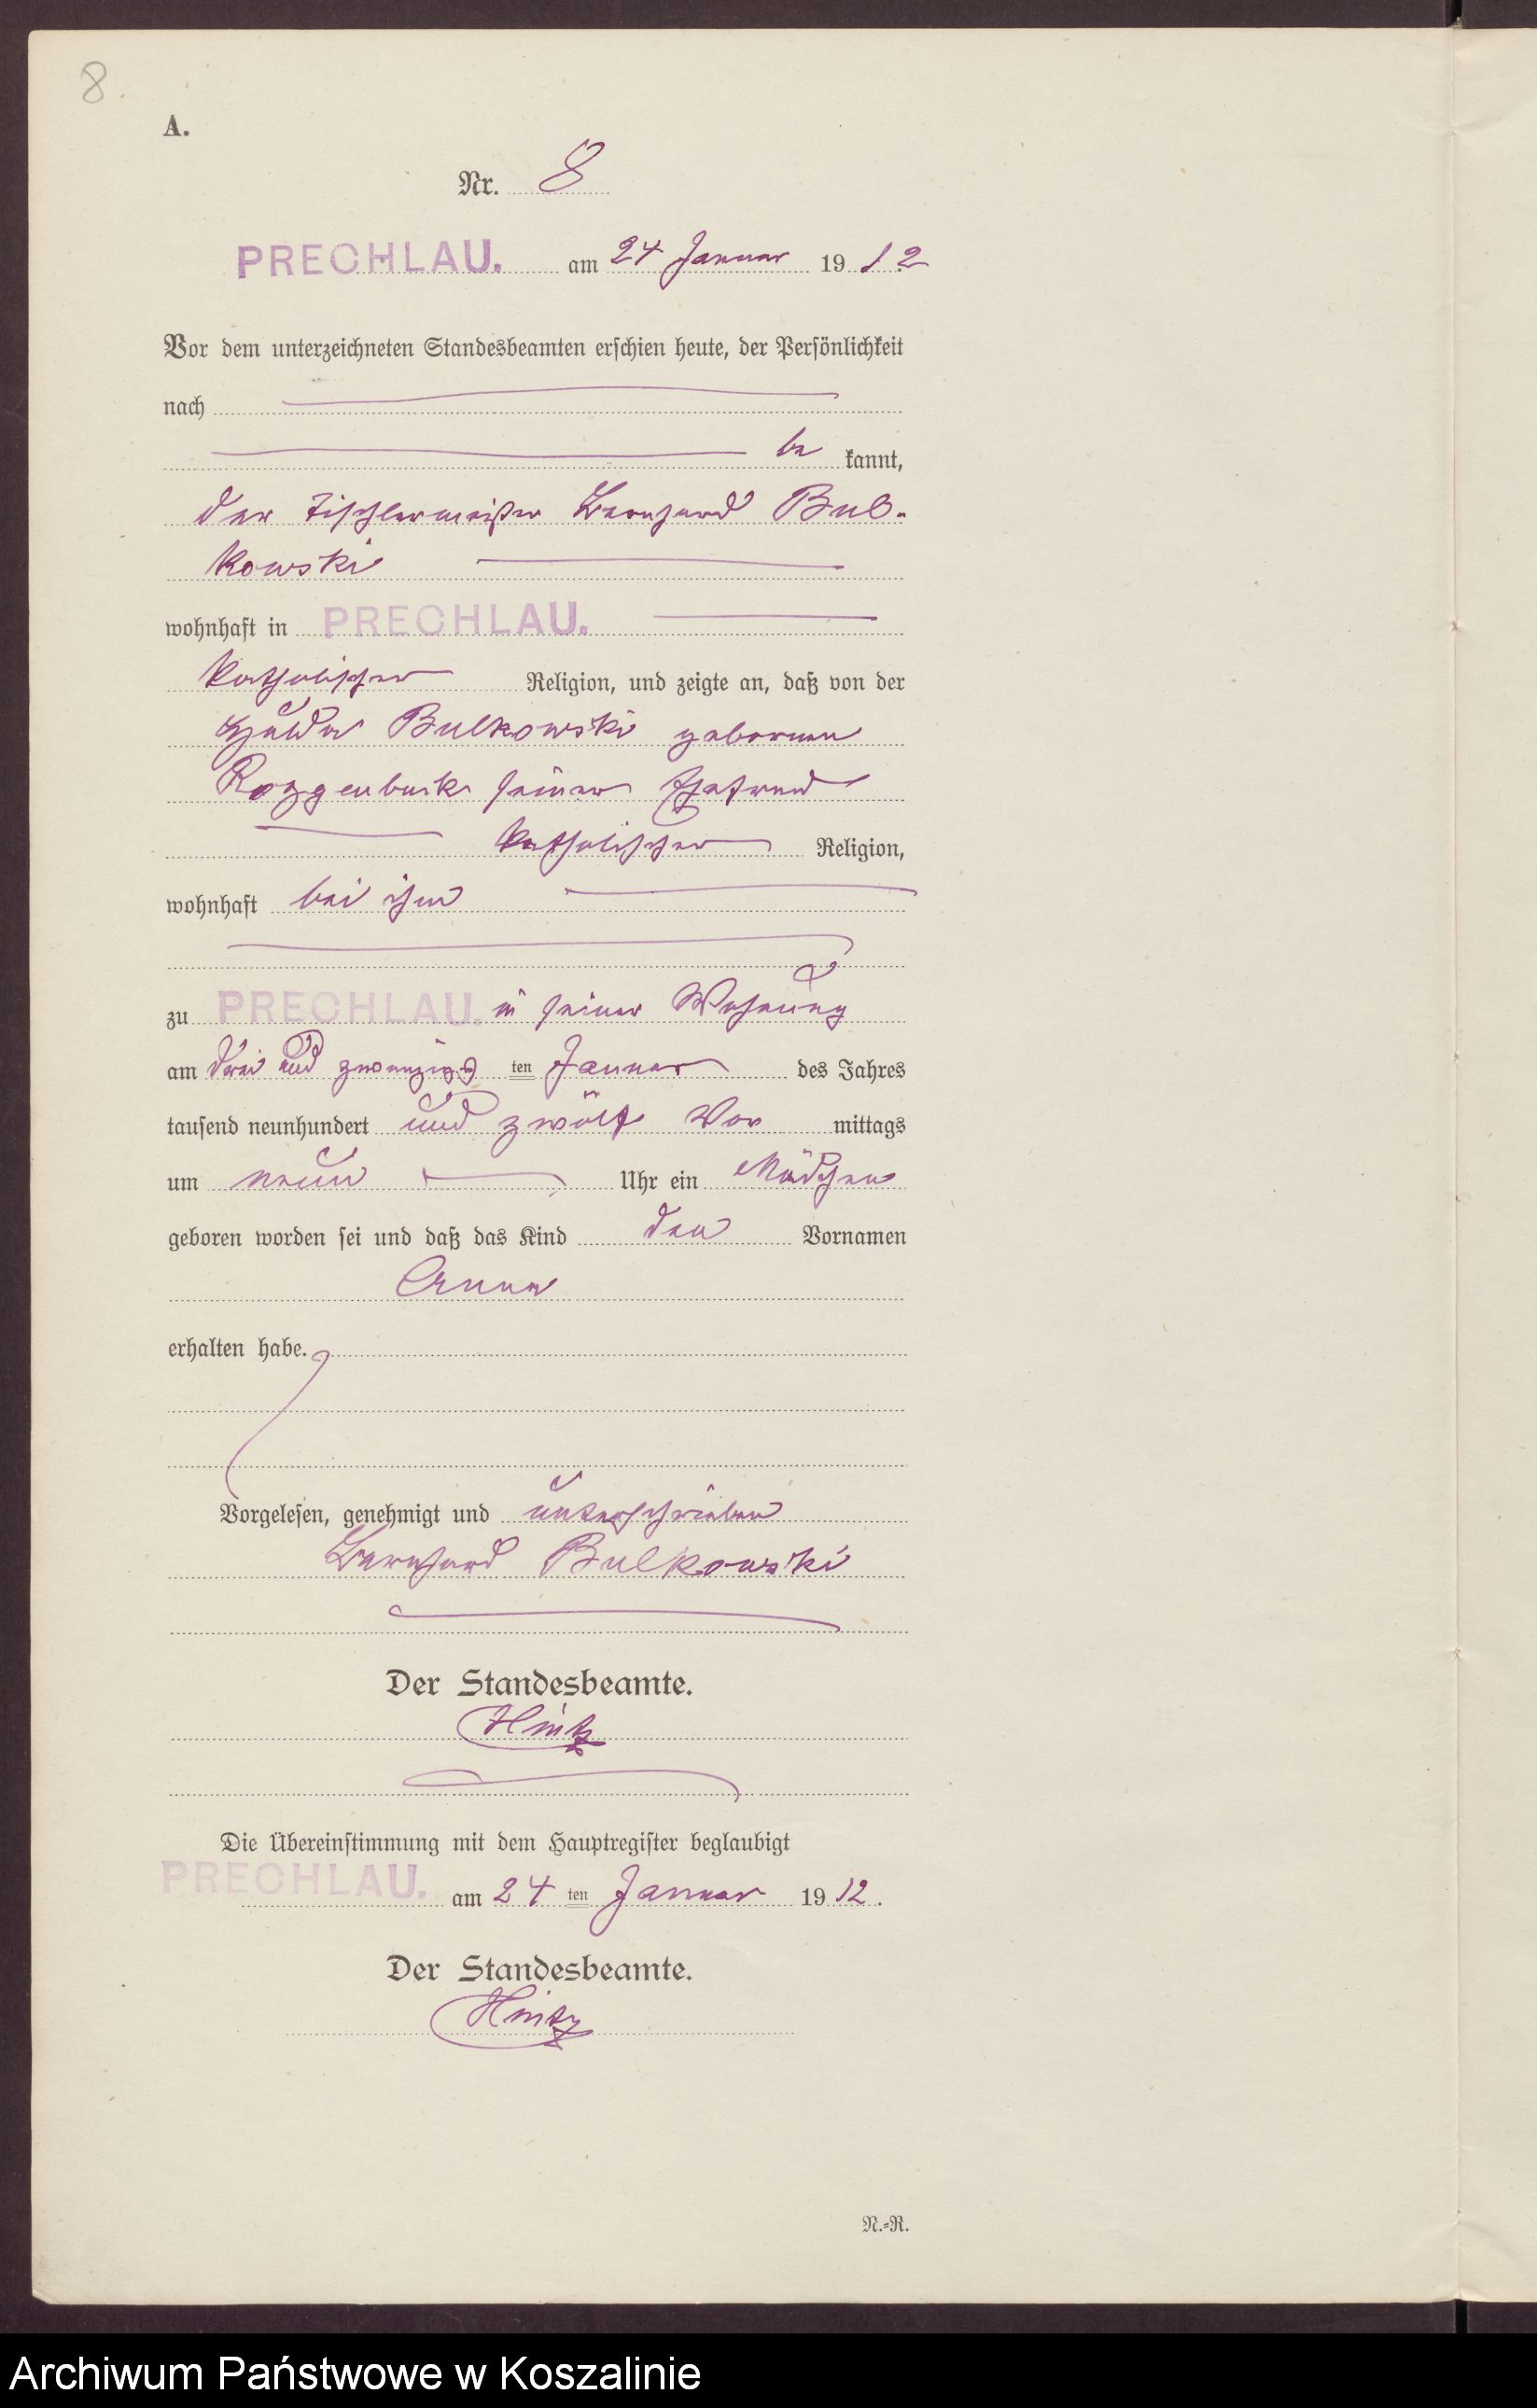 8.
A.
Nr. 8
PRECHLAU. am 24 Januar 1912
Vor dem unterzeichneten Standesbeamten erschien heute, der Persönlichkeit
nach
be kannt,
der Tischlermeister Bernhard Bul-
kowski
wohnhaft in PRECHLAU.
katholischer Religion, und zeigte an, daß von der
Hulda Bulkowski geborenen
Roggenbuck seiner Ehefrau
katholischer Religion,
wohnhaft bei ihm
zu PRECHLAU. in seiner Wohnung
am drei und zwanzigsten Januar des Jahres
tausend neunhundert und zwölf Vor mittags
um neun Uhr ein Mädchen
geboren worden sei und daß das Kind den Vornamen
Anna
erhalten habe.
Vorgelesen, genehmigt und unterschrieben
Bernhard Bulkowski
Der Standesbeamte.
Hintz
Die Übereinstimmung mit dem Hauptregister beglaubigt
PRECHLAU. am 24 ten Januar 1912.
Der Standesbeamte.
Hintz
N.=R.
Archiwum Państwowe w Koszalinie